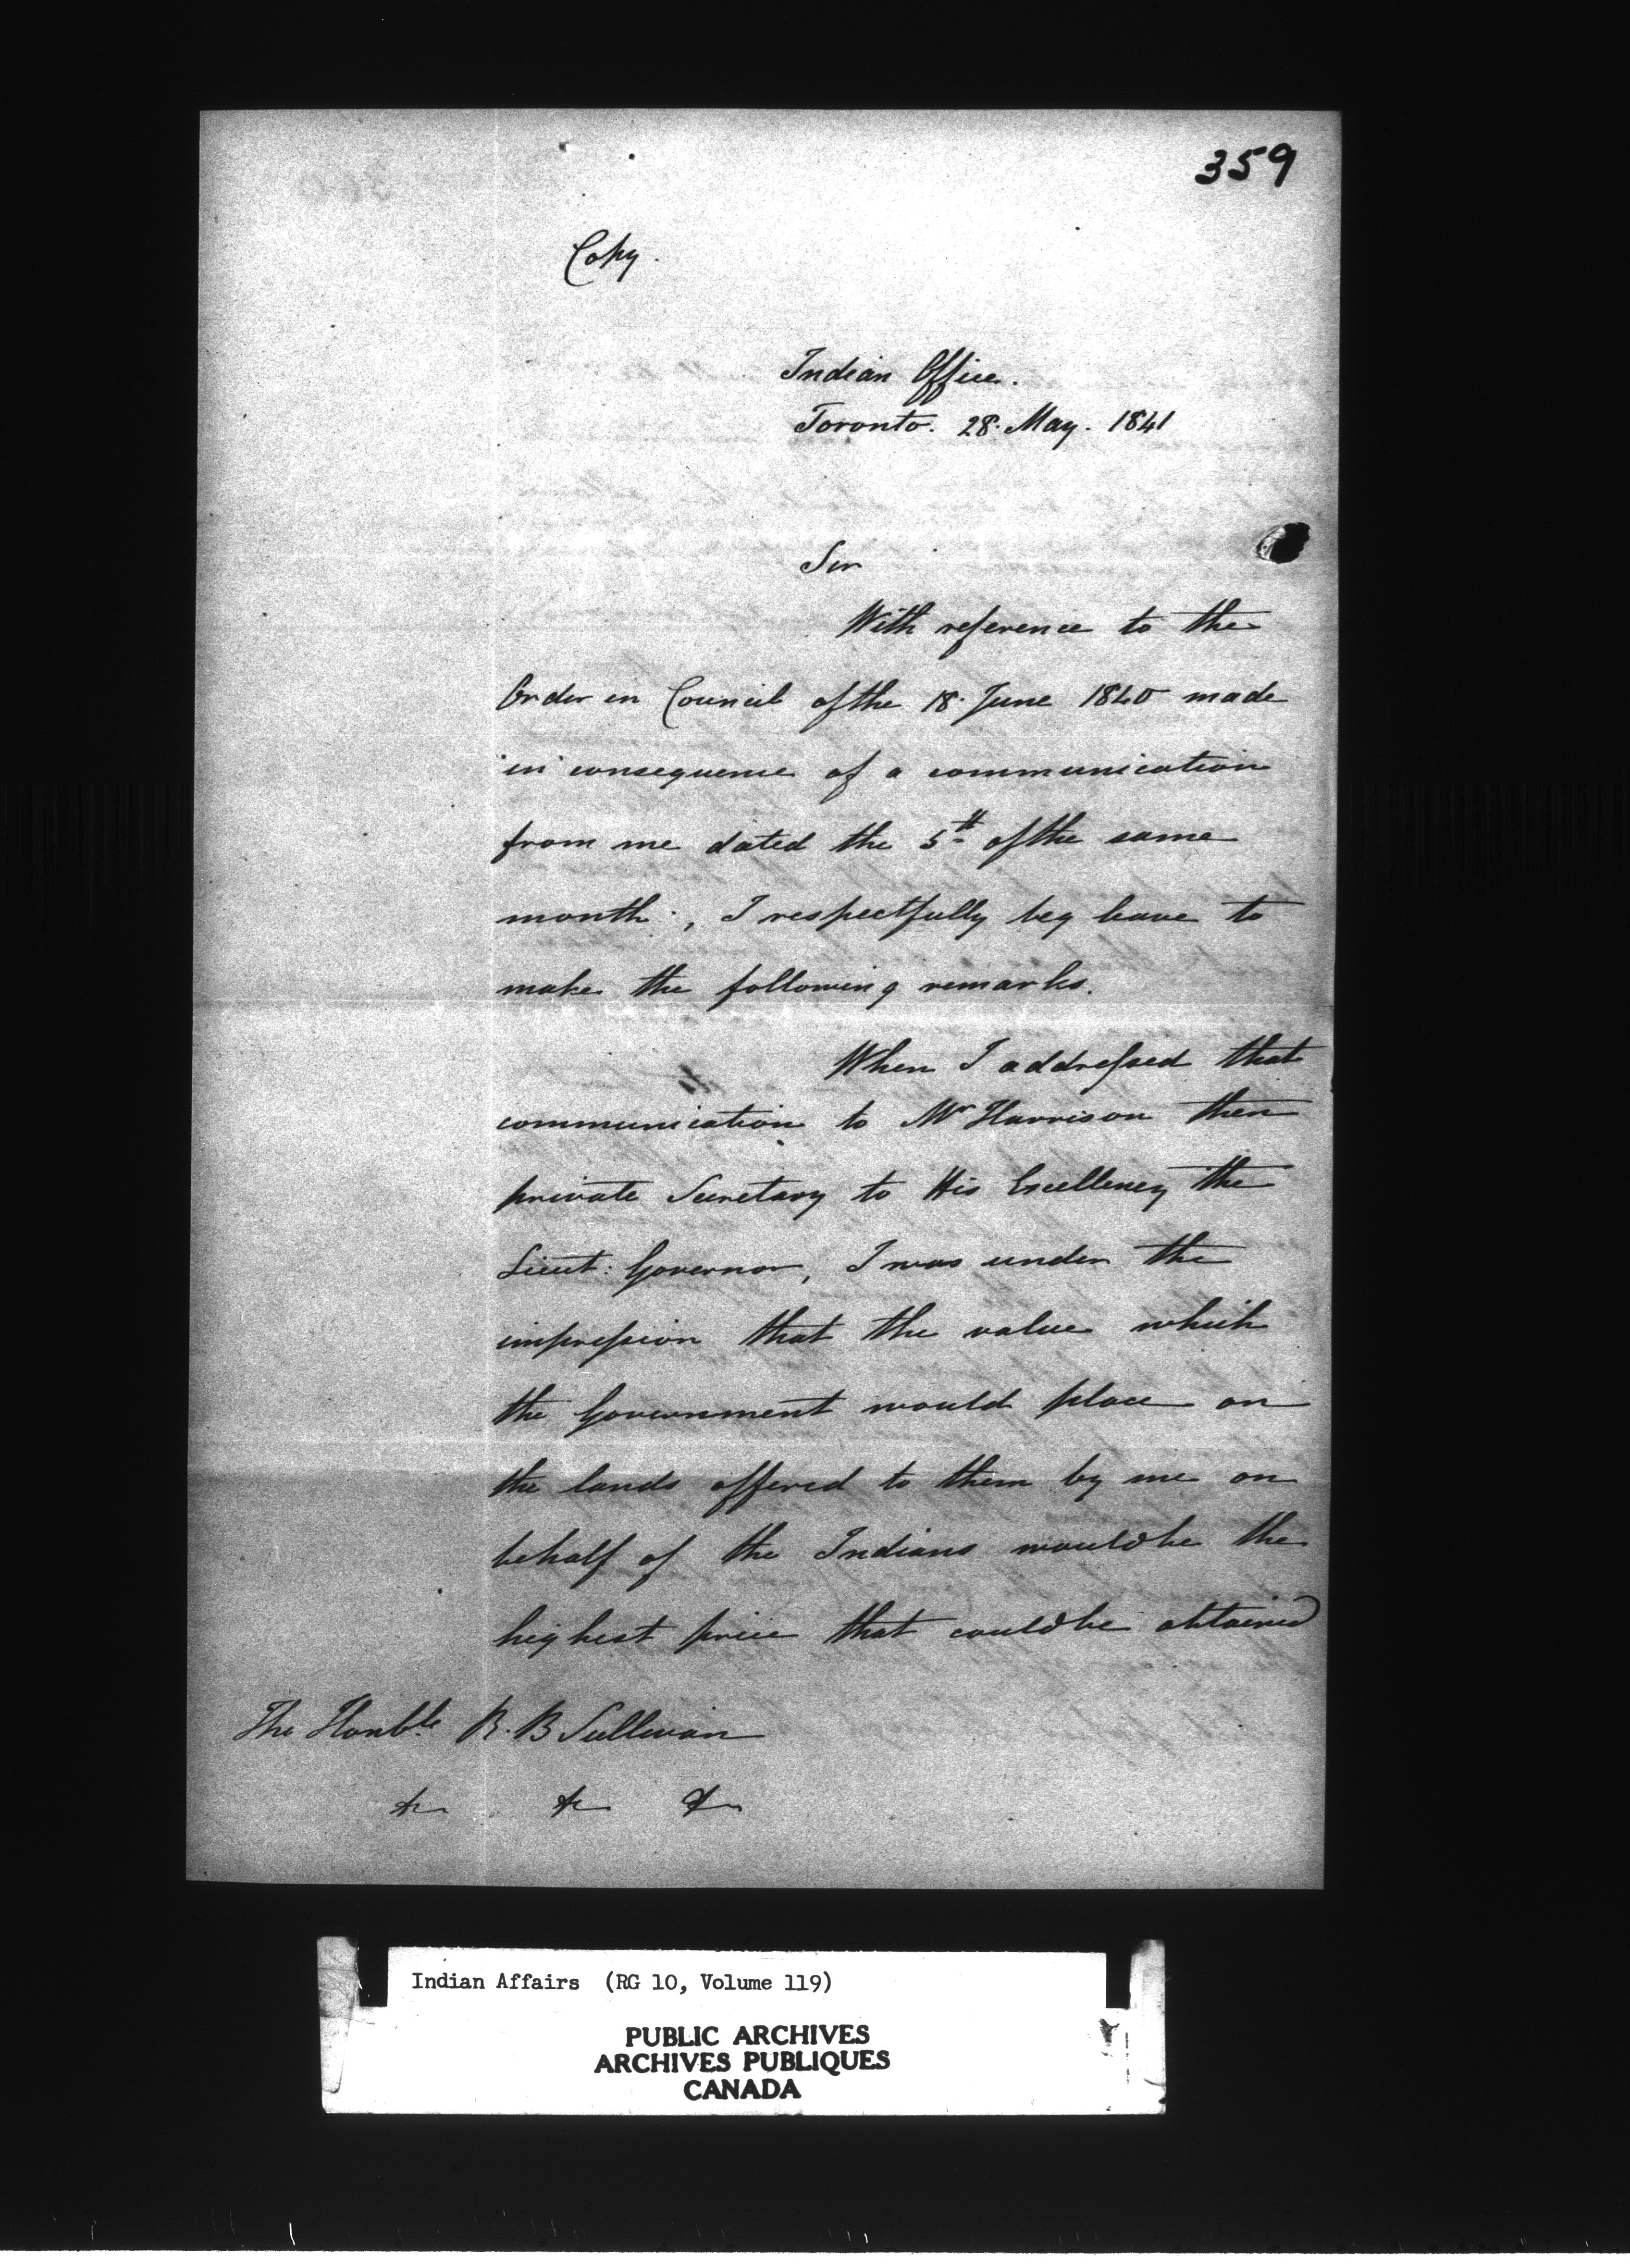 359
Copy.
Indian Office.
Toronto. 28. May. 1841
Sir
With reference to the
Order in Council of the 18. June 1840 made
in consequence of a communication
from me dated the 5th of the same
month, I respectfully beg leave to
make the following remarks.
When I addressed that
communication to Mr Harrison then
private Secretary to His Excellency the
Lieut: Governor, I was under the
impression that the value which
the Government would place on
the lands offered to them by me on
behalf of the Indians would be the
highest price that could be obtained
The Honble R. B Sullivan
&c &c &c
Indian Affairs (RG 10, Volume 119)
PUBLIC ARCHIVES
ARCHIVES PUBLIQUES
CANADA